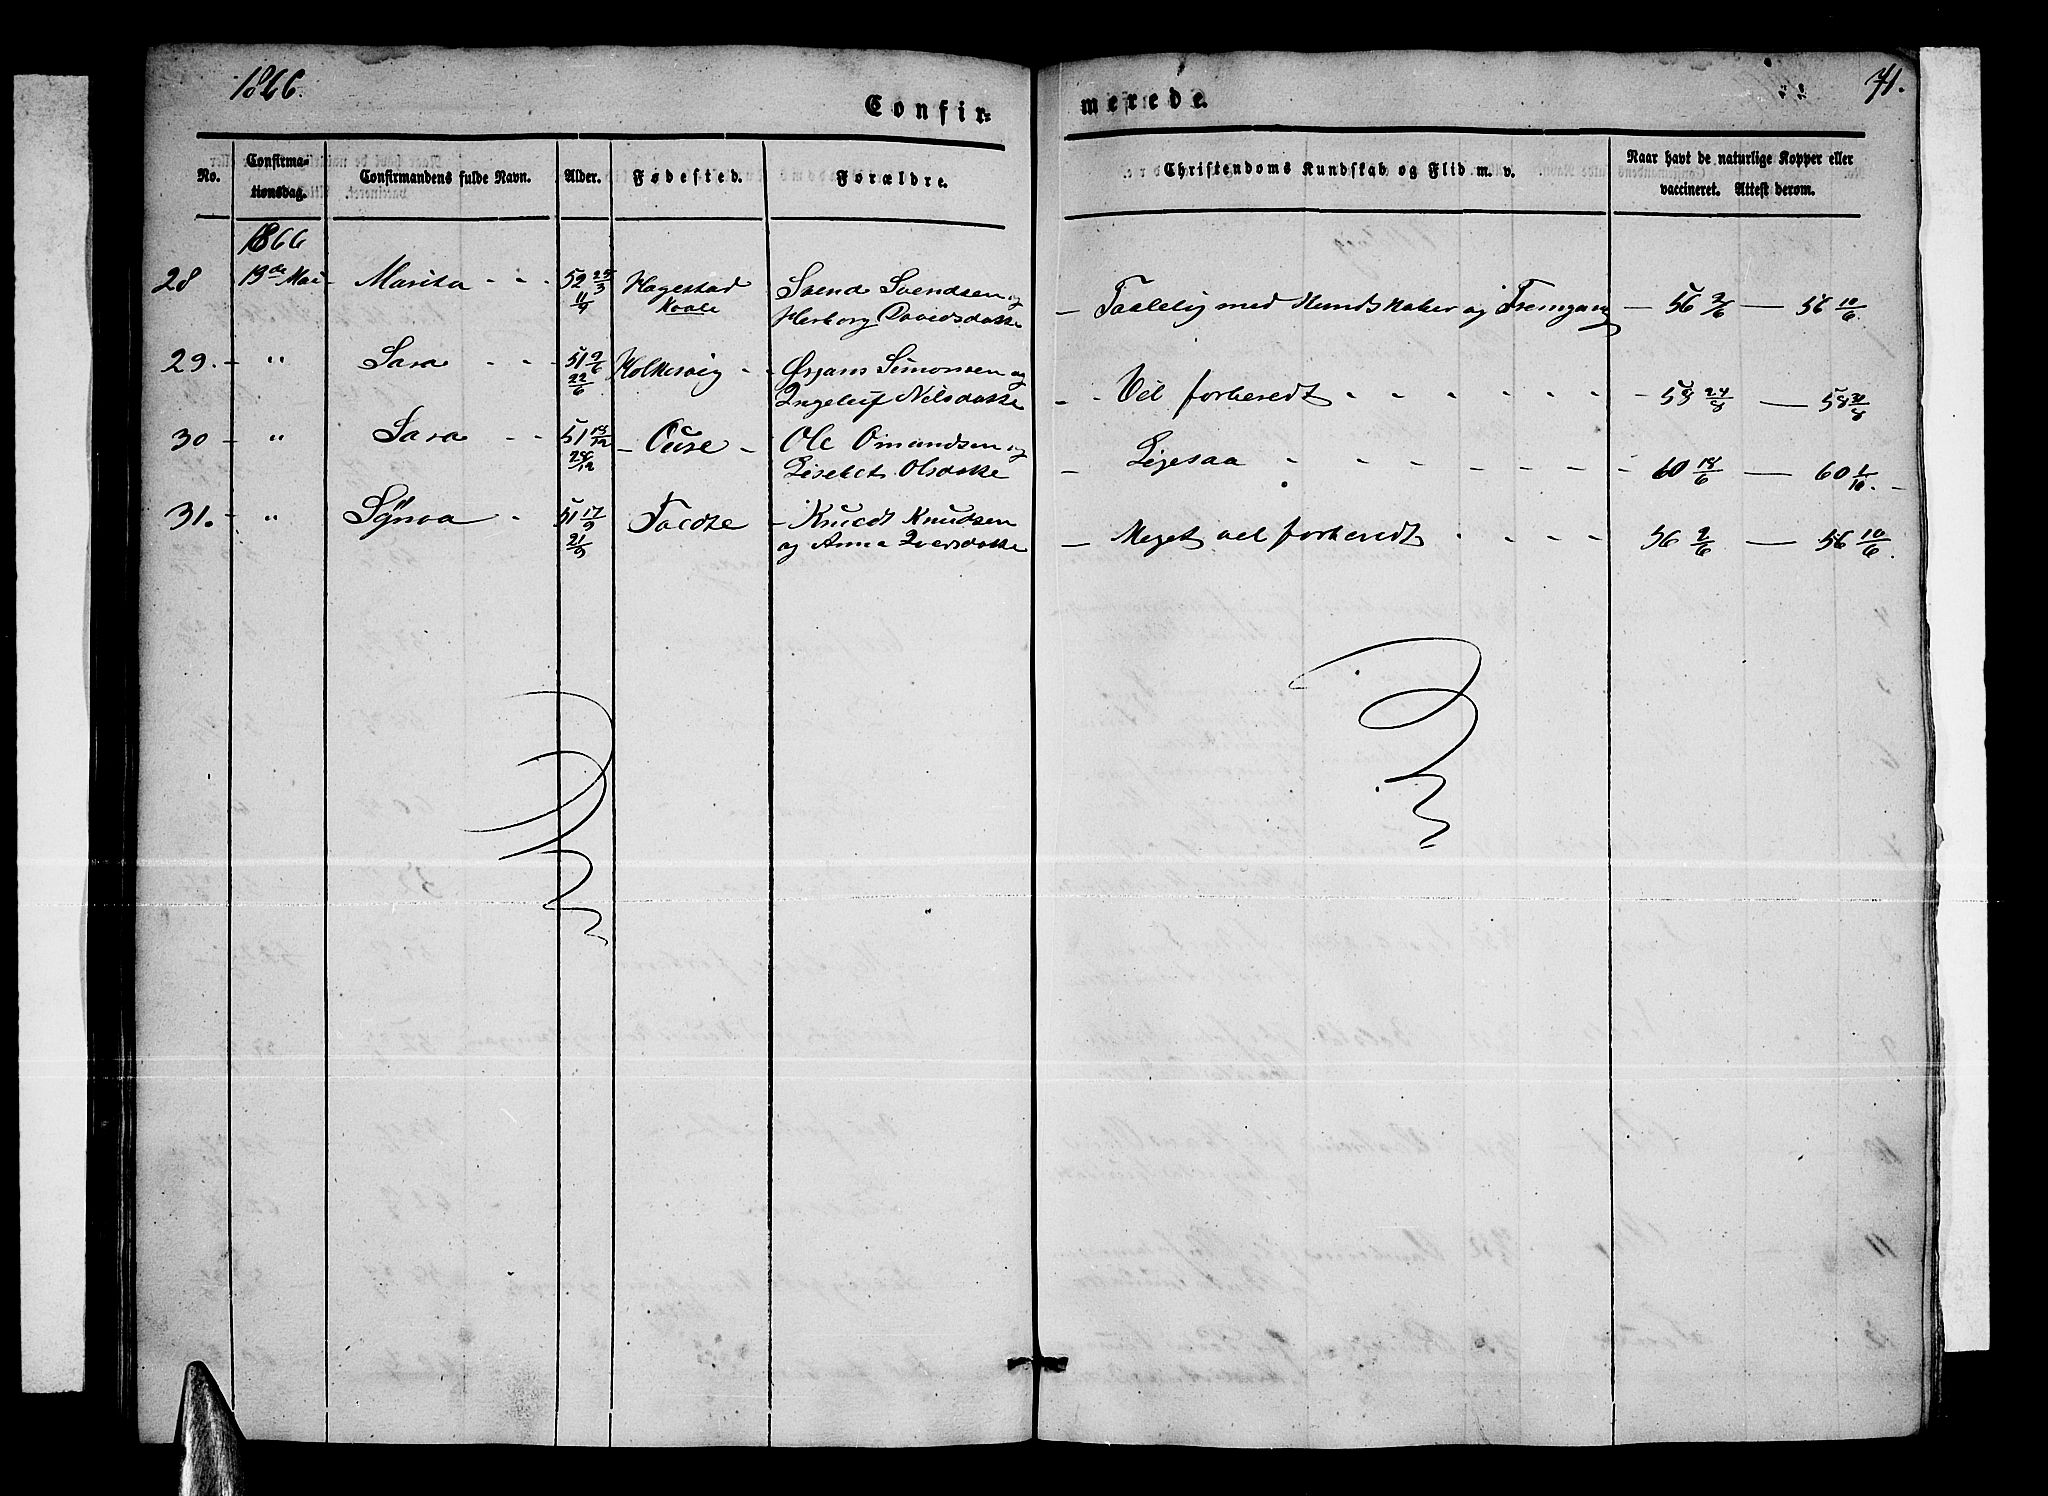 1866.
71.
Confir=
merede.
No.
Confirma-
tionsdag.
Confirmandens fulde Navn.
Alder.
Fødested.
Forældre.
Christendoms Kundskab og Flid m. v.
Naar havt de naturlige Kopper eller
vaccineret. Attest derom.
1866
28 19de Mai Marita - - 52 25/3 Hagestad Svend Svendsen og
11/4 Herborg Davidsdatte - Taalelig med Kundskaber og Fremgang - 56 2/6 - 56 10/6.
29. - " Sara - - 51 2/6 Holkesvig - - Ørjans Simonsen og
22/6 Nilsdatte - - Vel forberedt - - - - - - 58 24/8 - 58
30 - " Sara - - 51 18/12 - Ouse - Ole Omundsen og
28/12 Lisebet Olsdatte - Ligesaa - - - - - - - - 60 18/6 - 60 1/10. -
31. - " Synva - 51 17/9 Tvedte - Knuedt Knudsen
21/9 og Anna Iversdatte - Meget vel forberedt - - - - 56 2/6 - 56 10/6.